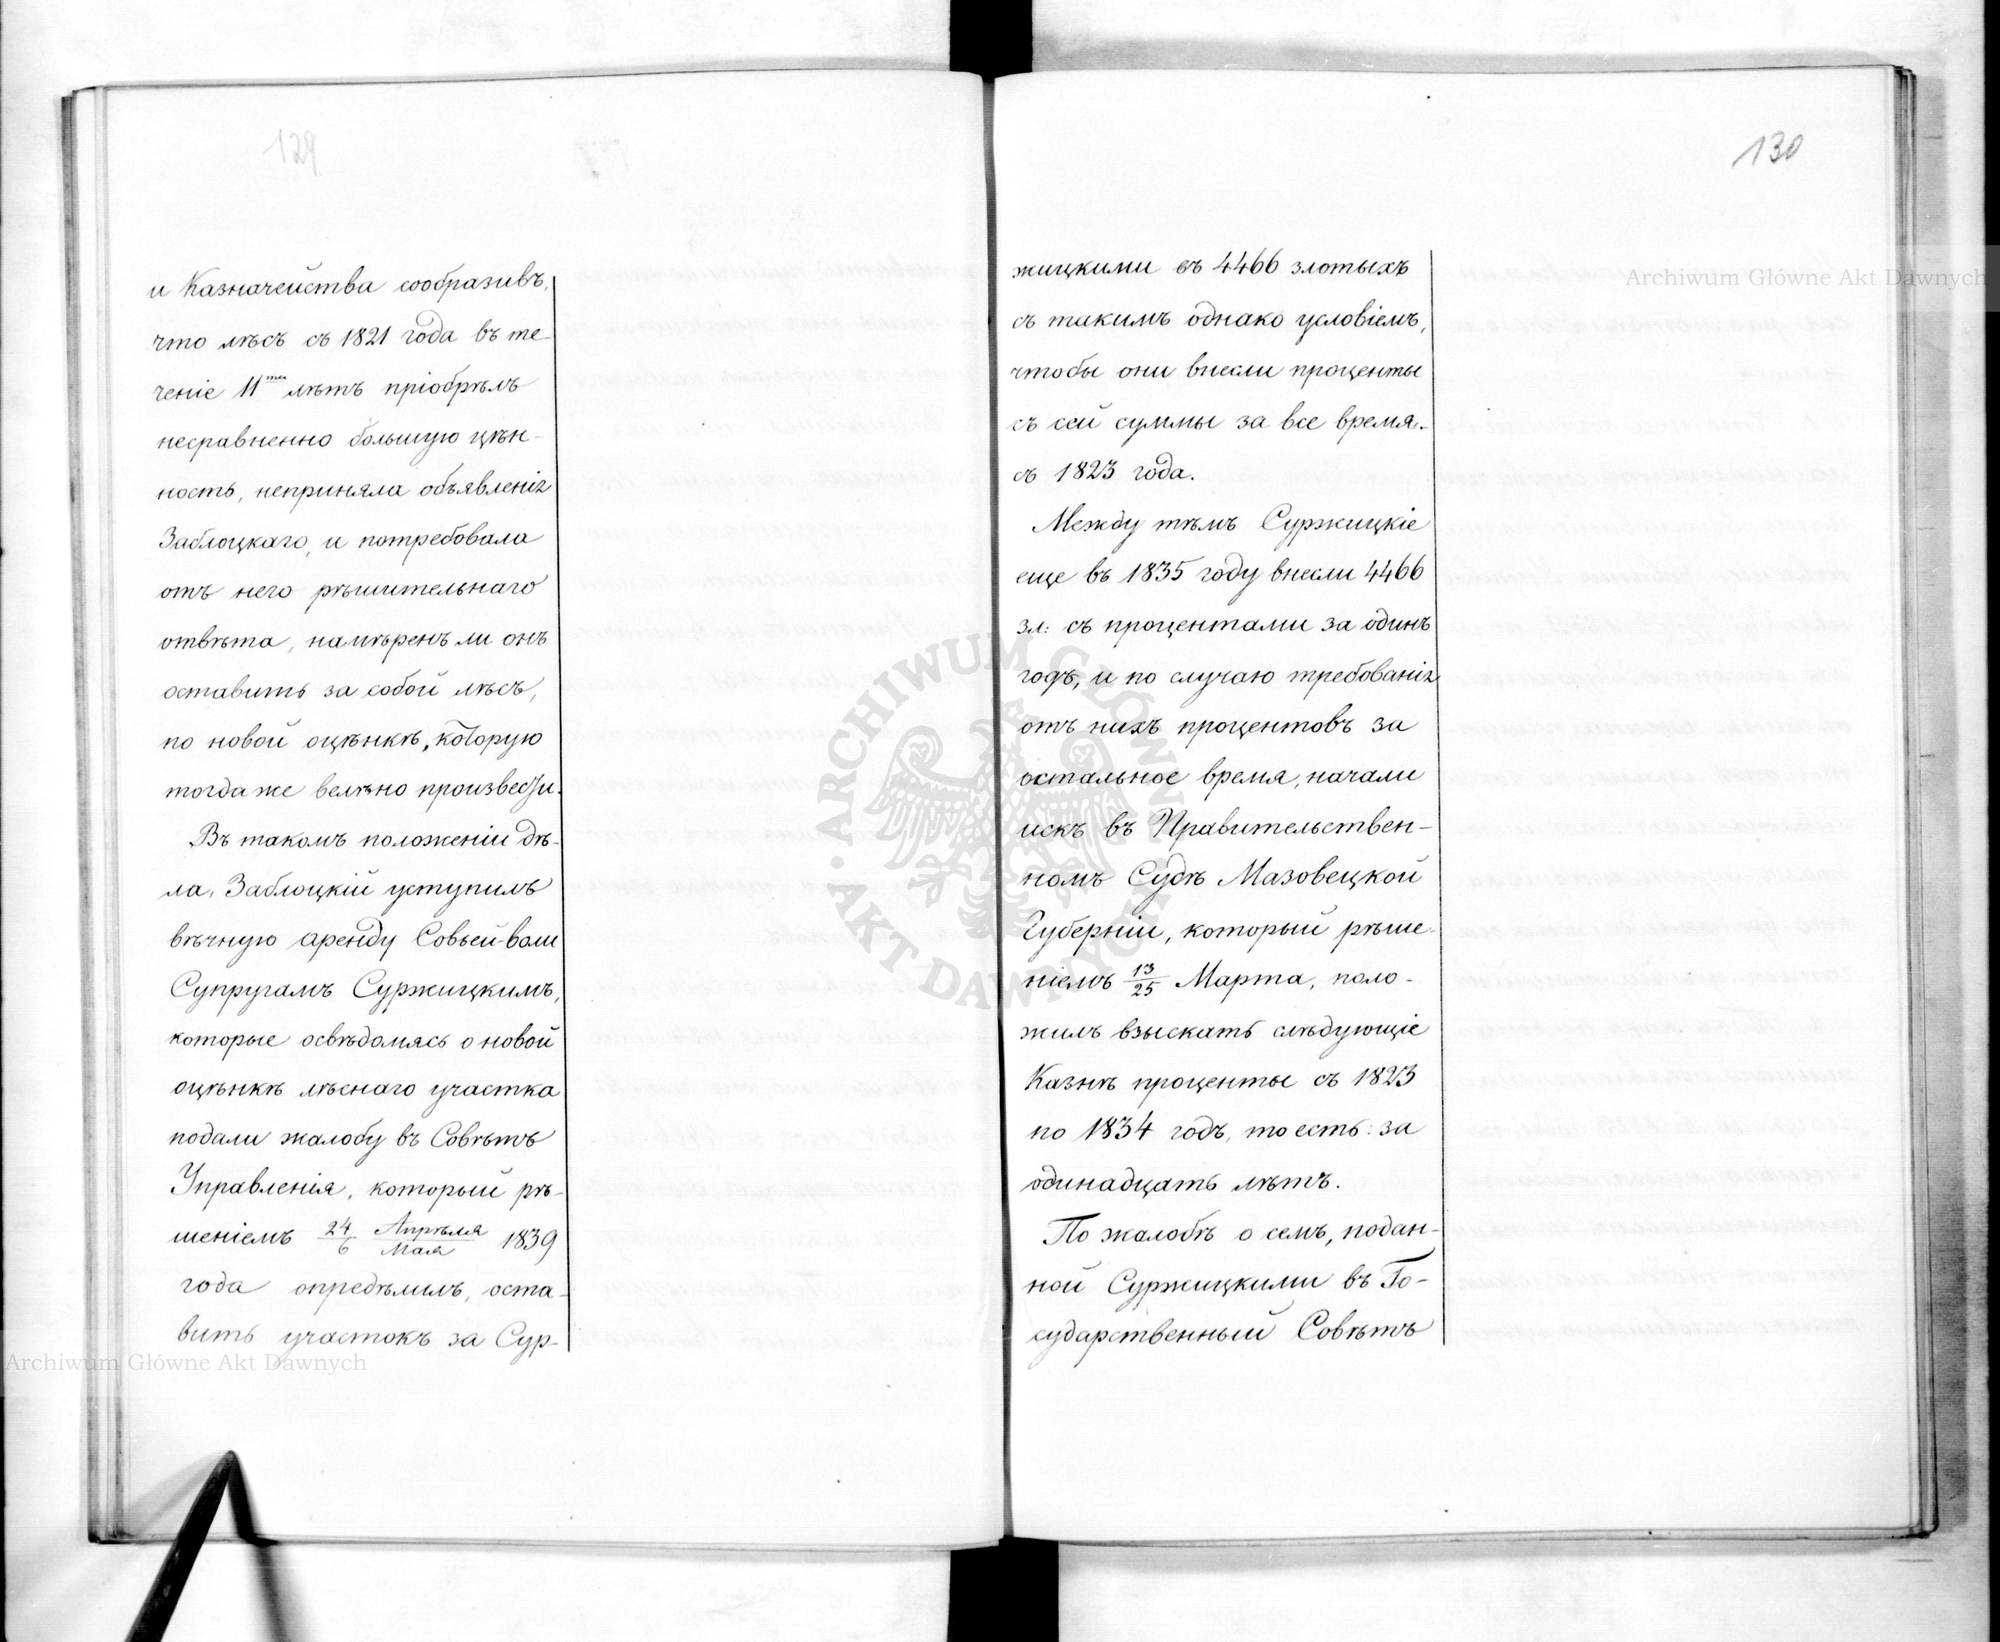 129
и Казначейства сообразивъ,
что лѣсъ съ 1821 года въ те-
ченіе 11ти лѣтъ пріобрѣлъ
несравненно большую цѣн-
ность, неприняла объявленія
Заблоцкаго, и потребовала
отъ него рѣшительнаго
отвѣта, намѣренъ ли онъ
оставить за собой лѣсъ,
по новой оцѣнкѣ, которую
тогда же велѣно произвести.
Въ такомъ положеніи дѣ-
ла, Заблоцкій уступилъ
вѣчную аренду Совьей-воли
Супругамъ Суржицкимъ,
которые освѣдомясь о новой
оцѣнкѣ лѣснаго участка
подали жалобу въ Совѣтъ
Управленія, который рѣ-
шеніемъ 24/6 Апрѣля/Мая 1839
года опредѣлилъ, оста-
вить участокъ за Сур-
130
жицкими въ 4466 злотыхъ
съ такимъ однако условіемъ,
чтобы они внесли проценты
съ сей суммы за все время
съ 1823 года.
Между тѣмъ Суржицкіе
еще въ 1835 году внесли 4466
зл: съ процентами за одинъ
годъ, и по случаю требованія
отъ нихъ процентовъ за
остальное время, начали
искъ въ Правительствен-
номъ Судѣ Мазовецкой
Губерніи, который рѣше-
ніемъ 13/25 Марта, поло-
жилъ взыскать слѣдующіе
Казнѣ проценты съ 1823
по 1834 годъ, то есть: за
одинадцать лѣтъ.
По жалобѣ о семъ, подан-
ной Суржицкими въ Го-
сударственный Совѣтъ
Archiwum Główne Akt Dawnych
Archiwum Główne Akt Dawnych
ARCHIWUM GŁÓWNE AKT DAWNYCH